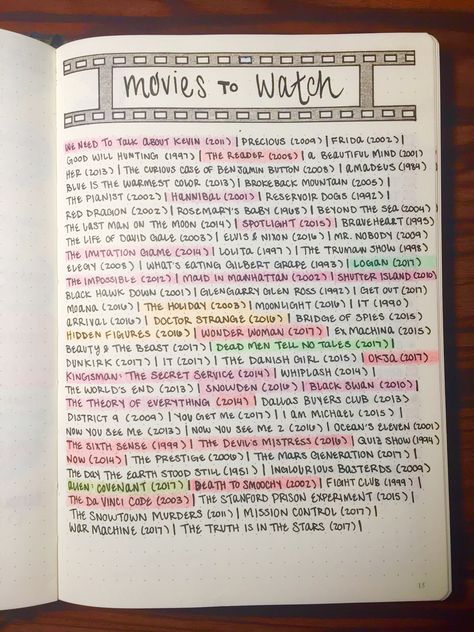 movies to watch
WE NEED TO TALK ABOUT KEVIN (2011) | PRECIOUS (2009) | FRIDA (2002) |
GOOD WILL HUNTING (1997) | THE READER (2008) | A BEAUTIFUL MIND (2001)
HER (2013) | THE CURIOUS CASE OF BENJAMIN BUTTON (2008) | AMADEUS (1984)
BLUE IS THE WARMEST COLOR (2013) | BROKEBACK MOUNTAIN (2005) |
THE PIANIST (2002) | HANNIBAL (2001) | RESERVOIR DOGS (1992) |
RED DRAGION (2002) | ROSEMARY'S BABY (1968) | BEYOND THE SEA (2004) |
THE LAST MAN ON THE MOON (2014) | SPOTLIGHT (2015) | BRAVEHEART (1995)
THE LIFE OF DAVID GALE (2003) | ELVIS & NIXON (2016) | MR. NOBODY (2009)
THE IMITATION GAME (2014) | LOLITA (1997) | THE TRUMAN SHOW (1998)
ELEGY (2008) | WHAT'S EATING GILBERT GRAPE (1993) | LOGAN (2017)
THE IMPOSSIBLE (2012) | MAID IN MANHATTAN (2002) | SHUTTER ISLAND (2010)
BLACK HAWK DOWN (2001) | GLENGARRY GLEN ROSS (1992) | GET OUT (2017)
MOANA (2016) | THE HOLIDAY (2003) | MOONLIGHT (2016) | IT (1990)
ARRIVAL (2016) | DOCTOR STRANGE (2016) | BRIDGE OF SPIES (2015)
HIDDEN FIGURES (2016) | WONDER WOMAN (2017) | EX MACHINA (2015)
BEAUTY & THE BEAST (2017) | DEAD MEN TELL NO TALES (2017) |
DUNKIRK (2017) | IT (2017) | THE DANISH GIRL (2015) | OKJA (2017)
KINGSMAN: THE SECRET SERVICE (2014) | WHIPLASH (2014) |
THE WORLD'S END (2013) | SNOWDEN (2016) | BLACK SWAN (2010) |
THE THEORY OF EVERYTHING (2014) | DALLAS BUYERS CLUB (2013)
DISTRICT 9 (2009) | YOU GET ME (2017) | I AM MICHAEL (2015) |
NOW YOU SEE ME (2013) | NOW YOU SEE ME 2 (2016) | OCEAN'S ELEVEN (2001)
THE SIXTH SENSE (1999) | THE DEVIL'S MISTRESS (2016) | QUIZ SHOW (1994)
NOW (2014) | THE PRESTIGE (2006) | THE MARS GENERATION (2017) |
THE DAY THE EARTH STOOD STILL (1951) | INGLOURIOUS BASTERDS (2009)
ALIEN: COVENANT (2017) | DEATH TO SMOOCHY (2002) | FIGHT CLUB (1999) |
THE DA VINCI CODE (2003) | THE STANFORD PRISON EXPERIMENT (2015) |
THE SNOWTOWN MURDERS (2011) | MISSION CONTROL (2017) |
WAR MACHINE (2017) | THE TRUTH IS IN THE STARS (2017) |
15